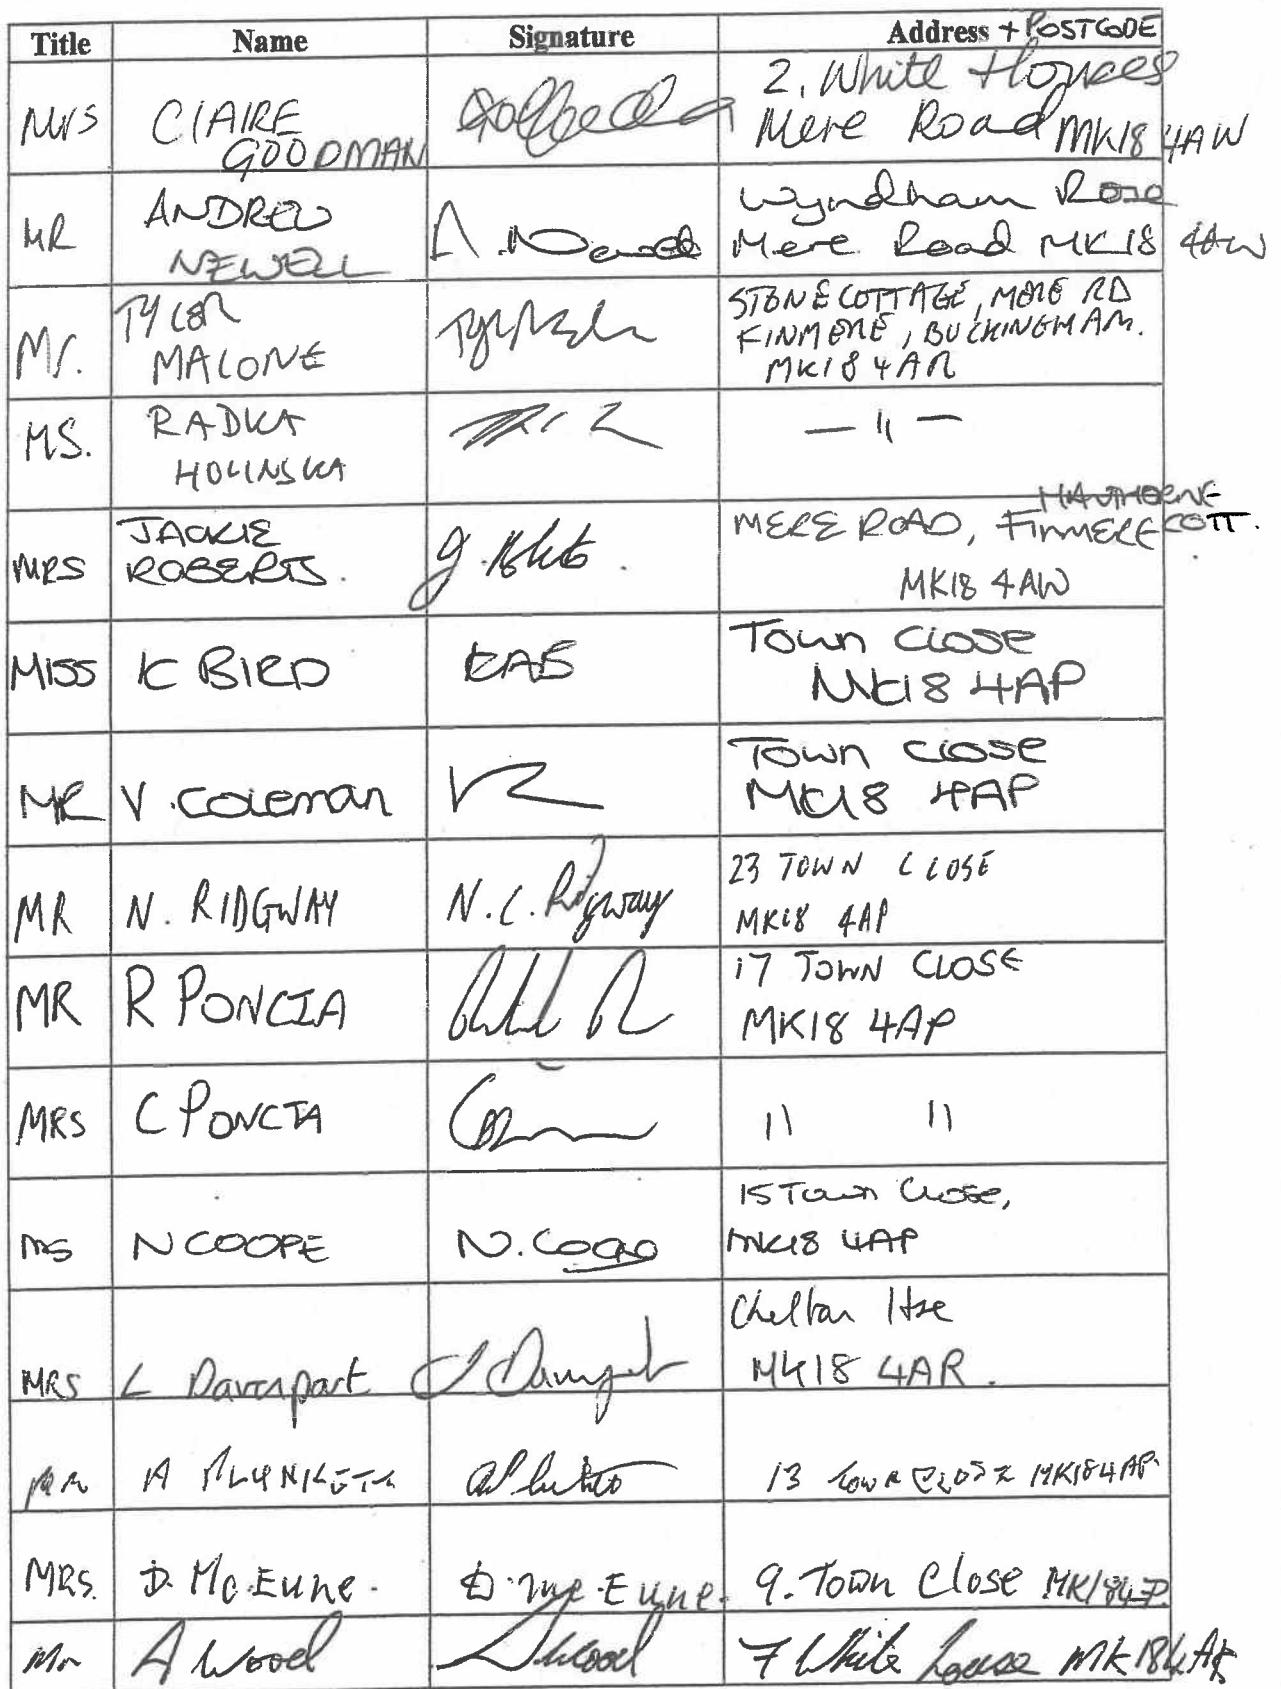 Title Name Signature Address + POSTCODE
Mrs CLAIRE GOODMAN 2, White Houses
Mere Road MK18 4AW
MR ANDREW NEWELL A. Newell Wyndham Rose
Mere Road MK18 4AW
Mr. TYLER MALONE STONE COTTAGE, MERE RD
FINMERE, BUCKINGHAM.
MK18 4AR
MS. RADKA HOLINSKA — 11 —
MRS JACKIE ROBERTS. HAWTHORNE
MERE ROAD, FINMERE COTT.
MK18 4AW
MISS K BIRD KAB Town Close
MK18 4AP
MR V. Coleman Town Close
MK18 4AP
MR N. RIDGWAY N.C. Ridgway 23 TOWN CLOSE
MK18 4AP
MR R PONCIA 17 TOWN CLOSE
MK18 4AP
MRS C PONCIA 11 11
MS N COOPE N. Coope 15 Town Close,
MK18 4AP
MRS L Davenport Hse
MK18 4AR.
MR A PLUNKETT 13 Town CLOSE MK18 4AP
MRS. D. Mc.Eune. D. Mc.Eune. 9. Town Close MK18 4AP
Mr A Wood A Wood 7 White house MK18 4AR